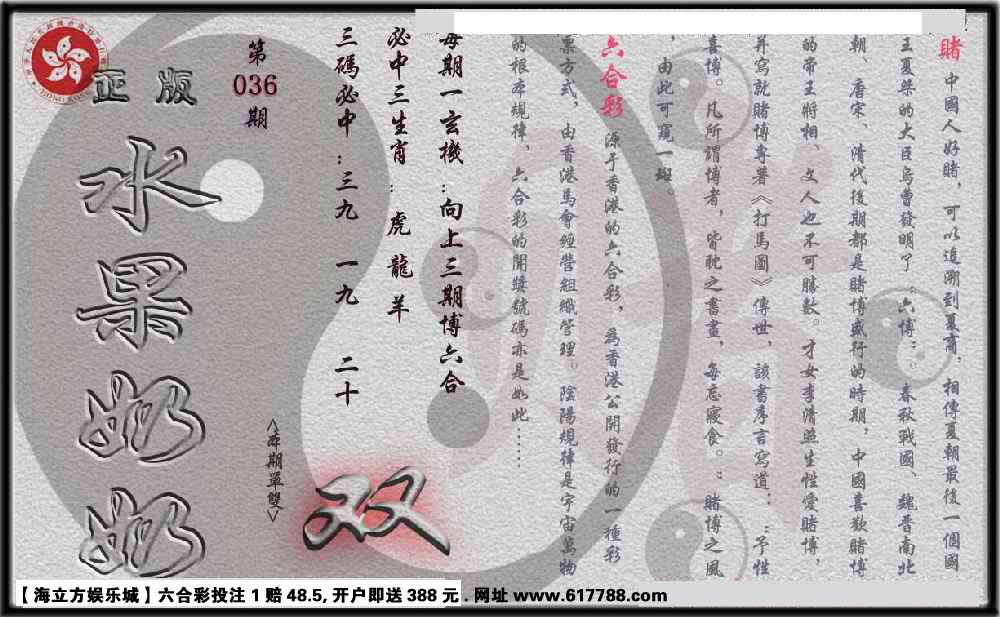 賭 中國人好賭，可以追溯到夏商．相傳夏朝最後一個國
王夏桀的大臣烏曹發明了“六博”．春秋戰國、魏晋南北
朝、唐宋、清代後期都是賭博盛行的時期，中國喜歡賭博
的帝王將相、文人也不可勝數。才女李清照生性愛賭博，
并寫就賭博專著《打馬圖》傳世，該書序言寫道：“予性
喜博。凡所謂博者，皆耽之晝畫，每忘寢食。”賭博之風
，由此可窺一斑。
六合彩 源于香港的六合彩，爲香港公開發行的一種彩
票方式，由香港馬會經營組織管理。陰陽規律是宇宙萬物
的根本規律，六合彩的開獎號碼亦是如此……
每期一玄機：向上三期博六合
必中三生肖：虎龍羊
三碼必中：三九 一九 二十
第
036
期
<本期單雙>
双
正版
水果奶奶
【海立方娱乐城】六合彩投注1赔48.5,开户即送388元.网址 www.617788.com